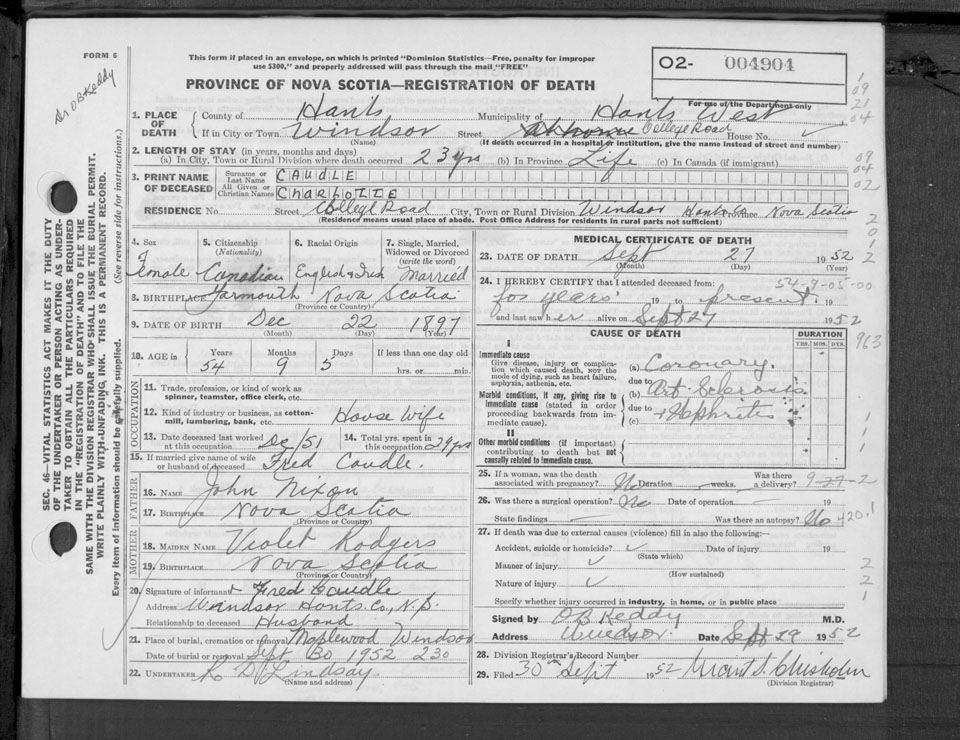 FORM 6
Dr O B Keddy
This form if placed in an envelope, on which is printed "Dominion Statistics—Free, penalty for improper
use $300," and properly addressed will pass through the mail "FREE"
PROVINCE OF NOVA SCOTIA—REGISTRATION OF DEATH
O2- 004904
For use of the Department only
1. PLACE OF DEATH County of Hants Municipality of Hants West
If in City or Town Windsor Street At home College Road House No.
(Name) (If death occurred in a hospital or institution, give the name instead of street and number)
2. LENGTH OF STAY (in years, months and days)
(a) In City, Town or Rural Division where death occurred 23 yrs (b) In Province Life (c) In Canada (if immigrant)
3. PRINT NAME OF DECEASED
Surname or Last Name CAUDLE
All Given or Christian Names CHARLOTTE
RESIDENCE No. Street College Road City, Town or Rural Division Windsor Hants Co Province Nova Scotia
(Residence means usual place of abode. Post Office Address for residents in rural parts not sufficient)
4. Sex Female
5. Citizenship (Nationality) Canadian
6. Racial Origin English & Irish
7. Single, Married, Widowed or Divorced (write the word) Married
8. BIRTHPLACE Yarmouth Nova Scotia
(Province or Country)
9. DATE OF BIRTH Dec 22 1897
(Month) (Day) (Year)
10. AGE in Years Months Days If less than one day old
54 9 5 hrs. or min.
OCCUPATION
11. Trade, profession, or kind of work as
spinner, teamster, office clerk, etc.
12. Kind of industry or business, as cotton-
mill, lumbering, bank, etc. House Wife
13. Date deceased last worked at this occupation Dc/51
14. Total yrs. spent in this occupation 29 yrs
15. If married give name of wife
or husband of deceased Fred Caudle.
FATHER
16. NAME John Nixon
17. BIRTHPLACE Nova Scotia
(Province or Country)
MOTHER
18. MAIDEN NAME Violet Rodgers
19. BIRTHPLACE Nova Scotia
(Province or Country)
20. Signature of informant Fred Caudle
Address Windsor Hants. Co., N. S.
Relationship to deceased Husband
21. Place of burial, cremation or removal Maplewood Windsor
Date of burial or removal Sept 30 1952 230
22. UNDERTAKER L D Lindsay
(Name and address)
MEDICAL CERTIFICATE OF DEATH
23. DATE OF DEATH Sept 27 1952
(Month) (Day) (Year)
24. I HEREBY CERTIFY that I attended deceased from:
for years 19 to present 19
and last saw her alive on Sept 27 1952
CAUSE OF DEATH
DURATION
YRS. MOS. DYS.
I
Immediate cause
Give disease, injury or complication which caused death, not the mode of dying, such as heart failure, asphyxia, asthenia, etc.
(a) Coronary.
due to
Morbid conditions, if any, giving rise to immediate cause (stated in order proceeding backwards from immediate cause).
(b) Art. Sclerosis
due to
(c) + Nephritis
II
Other morbid conditions (if important) contributing to death but not causally related to immediate cause.
25. If a woman, was the death associated with pregnancy? No Duration weeks. Was there a delivery?
26. Was there a surgical operation? No Date of operation 19
State findings Was there an autopsy? No
420.1
27. If death was due to external causes (violence) fill in also the following:—
Accident, suicide or homicide? Date of injury 19
(State which)
Manner of injury
(How sustained)
Nature of injury
Specify whether injury occurred in industry, in home, or in public place
Signed by O B Keddy M.D.
Address Windsor. Date Sept 29 1952
28. Division Registrar's Record Number
29. Filed 30 Sept 1952
(Division Registrar)
SEC. 46—VITAL STATISTICS ACT MAKES IT THE DUTY
OF THE UNDERTAKER OR PERSON ACTING AS UNDER-
TAKER TO OBTAIN ALL THE PARTICULARS REQUIRED
IN THE "REGISTRATION OF DEATH" AND TO FILE THE
SAME WITH THE DIVISION REGISTRAR WHO SHALL ISSUE THE BURIAL PERMIT.
WRITE PLAINLY WITH UNFADING INK. THIS IS A PERMANENT RECORD.
Every item of information should be carefully supplied. (See reverse side for instructions.)